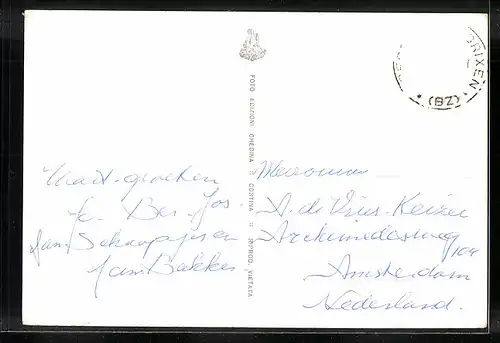 Hart. groeten
fr. Ber. Jos.
Jan Bakker
FOTO EDIZIONI GHEDINA - CORTINA - RIPROD. VIETATA
BRIXEN
(BZ)
Mevrouw
A. de Vries-Keizer
Archimedesweg
109
Amsterdam
Nederland.